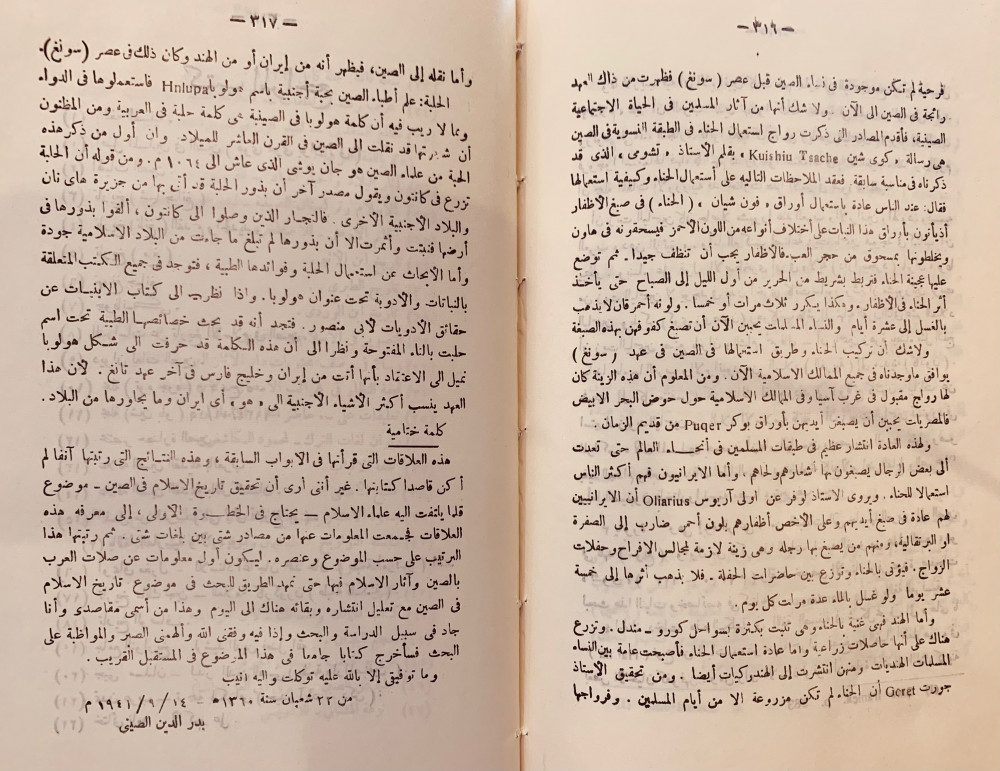 — ٣١٦ —
فرحية لم تكن موجودة فى نساء الصين قبل عصر ( سونغ ) فظهرت من ذاك العهد
رائجة فى الصين الى الآن . ولا شك أنها من آثار المسلمين فى الحياة الاجتماعية
الصينية، فأقدم المصادر التى ذكرت رواج استعمال الحناء فى الطبقة النسوية فى الصين
هى رسالة « كوى شين Kuishiu Tsache » بقلم الأستاذ « تشومى » الذى قد
ذكرناه فى مناسبة سابقة . فعقد الملاحظات التاليه على أستعمال الحناء وكيفية استعمالها
فقال: عند الناس عادة باستعمال أوراق « فون شيان » ( الحناء ) فى صبغ الأظفار
أذ يأتون بأوراق هذا النبات على أختلاف أنواعه من اللون الأحمر فيسحقونه فى هاون
ويخلطونها بمسحوق من حجر العب . فالأظفار يجب أن تنظف جيدا . ثم توضع
عليها عجينة الحناء، فتربط بشريط من الحرير من أول الليل إلى الصباح حتى يأخذ
أثر الحناء فى الأظفار . وهكذا يتكرر ثلاث مرات أو خمسا . ولونه أحمر قان لا يذهب
بالغسل إلى عشرة أيام والنساء المسلمات يحبين الآن أن تصبغ كفوفهن بهذه الصبغة
ولاشك أن تركيب الحناء وطريق استعمالها فى الصين فى عهد ( سونغ )
يوافق ماوجدناه فى جميع الممالك الاسلامية الآن . ومن المعلوم أن هذه الزينة كان
لها رواج مقبول فى غرب آسيا وفى الممالك الاسلامية حول حوض البحر الابيض
فالمصريات يحبين أن يصبغن أيديهن بأوراق بوكر Puqer من قديم الزمان .
ولهذه العادة انتشار عظيم فى طبقات المسلمين فى أنحاء العالم حتى تعدت
ألى بعض الرجال يصبغون بها أشعارهم ولحاهم . وأما الايرانيون فهم أكثر الناس
استعمالا للحناء . ويروى الاستاذ لوفر عن اولى آريوس Oliarius أن الايرانيين
لهم عادة فى صبغ أيديهم وعلى الأخص أظفارهم بلون أحمر ضارب إلى الصفرة
او البرتقالية، ومنهم من يصبغ بها رجله وهى زينة لازمة لمجالس الافراح وحفلات
الزواج . فيؤتى بالحناء وتوزع بين حاضرات الحفلة . فلا يذهب أثرها إلى خمسة
عشر يوما ولو غسل بالماء عدة مرات كل يوم .
وأما الهند فهى غنية بالحناء وهى تنبت بكثرة بسواحل كورو – مندل . وتزرع
هناك على أنها حاصلات زراعية وأما عادة استعمال الحناء فأصبحت عامة بين النساء
المسلمات الهنديات ومنهن انتشرت إلى الهندركيات أيضا . ومن تحقيق الأستاذ
جورت Goret أن الحناء لم تكن مزروعة الا من أيام المسلمين . وفرواجها
— ٣١٧ —
وأما نقله إلى الصين، فيظهر أنه من إيران أو من الهند وكان ذلك فى عصر (سونغ).
الحلبة: علم أطباء الصين بحبة أجنبية باسم هولوبا Hnlupa فاستعملوها فى الدواء
ومما لا ريب فيه أن كلمة هولوبا فى الصينية هى كلمة حلبة فى العربية ومن المظنون
أن شجرتها قد نقلت الى الصين فى القرن العاشر للميلاد وان أول من ذكر هذه
الحبة من علماء الصين هو جان يوشى الذى عاش الى ١٠٦٤ م . ومن قوله أن الحلبة
تزرع فى كانتون ويقول مصدر آخر أن بذور الحلبة قد أتى بها من جزيرة هاى نان
والبلاد الأجنبية الأخرى . فالتجار الذين وصلوا الى كانتون ، ألقوا بذورها فى
أرضها فنبتت وأثمرت الا أن بذورها لم تبلغ ما جاءت من البلاد الاسلامية جودة
وأما الأبحاث عن استعمال الحلبة وفوائدها الطبية ، فتوجد فى جميع الكتب المتعلقة
بالنباتات والأدوية تحت عنوان هولوبا . واذا نظرنا الى كتاب الابنيات عن
حقائق الأدويات لأبى منصور . فتجد أنه قد بحث خصائصها الطبية تحت اسم
حلبت بالتاء المفتوحة ونظرا الى أن هذه الكلمة قد حرفت الى شكل هولوبا
نميل الى الاعتقاد بأنها أتت من إيران وخليج فارس فى آخر عهد تانغ . لأن هذا
العهد ينسب أكثر الأشياء الأجنبية الى « هو » أى ايران وما يجاورها من البلاد .
كلمة ختامية
هذه العلاقات التى قرأتها فى الابواب السابقة ، وهذه النتائج التى رتبتها آنفا لم
أكن قاصدا كتابتها . غير أننى أرى أن تحقيق تاريخ الاسلام فى الصين – موضوع
قلما يلتفت اليه علماء الاسلام — يحتاج فى الخطوة الأولى ، إلى معرفه هذه
العلاقات فجمعت المعلومات عنها من مصادر شتى بين بلغات شتى . ثم رتبتها هذا
الترتيب على حسب الموضوع وعنصره . ليكون أول معلومات عن صلات العرب
بالصين وآثار الاسلام فيها حتى تمهد الطريق للبحث فى موضوع تاريخ الاسلام
فى الصين مع تعليل انتشاره وبقائه هناك الى اليوم وهذا من أسمى مقاصدى وأنا
جاد فى سبيل الدراسة والبحث وإذا فيه وفقنى الله وألهمنى الصبر والمواظبة على
البحث فسأخرج كتابا جامعا فى هذا الموضوع فى المستقبل القريب .
وما توفيقى إلا بالله عليه توكلت واليه أنيب
من ٢٢ شعبان سنة ١٣٦٠ھ – ١٤ / ٩ / ١٩٤١ م
بدر الدين الصينى